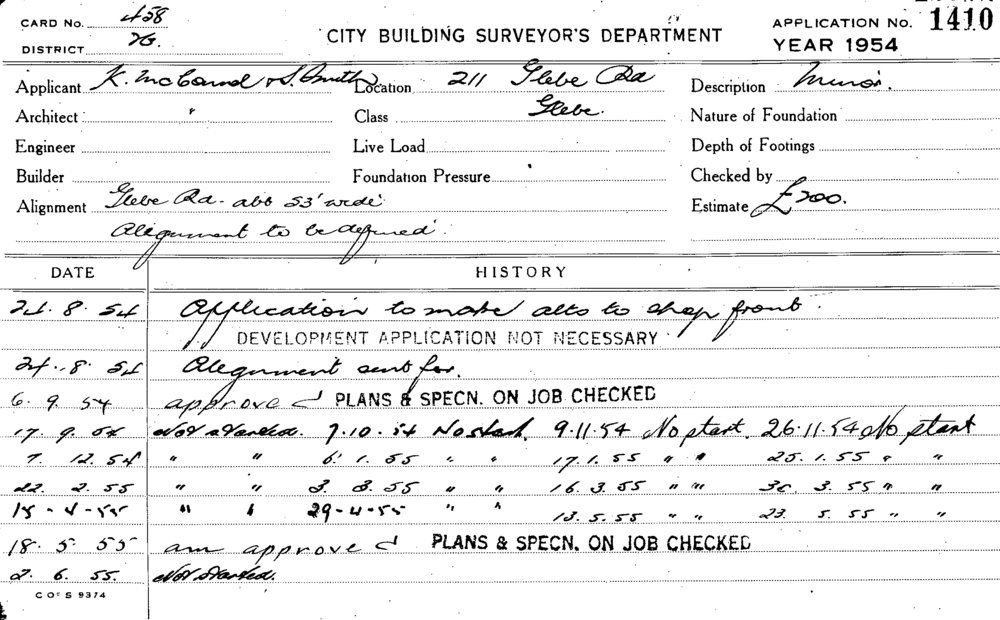 CARD No. 458
DISTRICT
CITY BUILDING SURVEYOR'S DEPARTMENT
APPLICATION No. 1410
YEAR 1954
Applicant K. McCannd & S. Smith Location 211 Glebe Rd Description Minor.
Architect " Class Glebe. Nature of Foundation
Engineer Live Load Depth of Footings
Builder Foundation Pressure Checked by
Alignment Glebe Rd. abt 33' wide Estimate £200.
Alignment to be defined.
DATE HISTORY
24. 8. 54 Application to make alts to shop front.
DEVELOPMENT APPLICATION NOT NECESSARY
24. 8. 54 Alignment sent for.
6. 9. 54 approved PLANS & SPECN. ON JOB CHECKED
17. 9. 54 Not started. 7.10.54 No start. 9.11.54 No start. 26.11.54 No start
7. 12. 54 " " 6. 1. 55 " " 17.1.55 " " 25.1.55 " "
22. 2. 55 " " 3. 3. 55 " " 16.3.55 " " 30. 3. 55 " "
15-4-55 " " 29-4-55 " " 13.5.55 " " 23. 5. 55 " "
18. 5. 55 am approved PLANS & SPECN. ON JOB CHECKED
2. 6. 55. Not started.
C OF S 9374